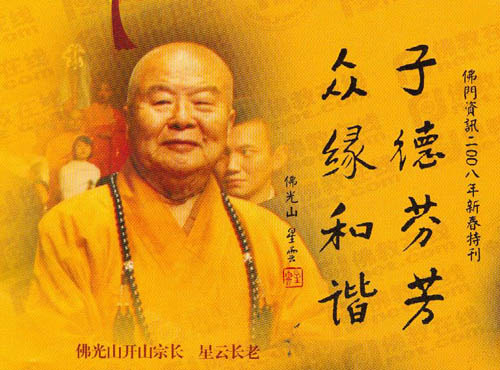 佛門資訊二〇〇八年新春特刊
子德芬芳
众缘和谐
佛光山 星雲
佛光山开山宗长 星云长老